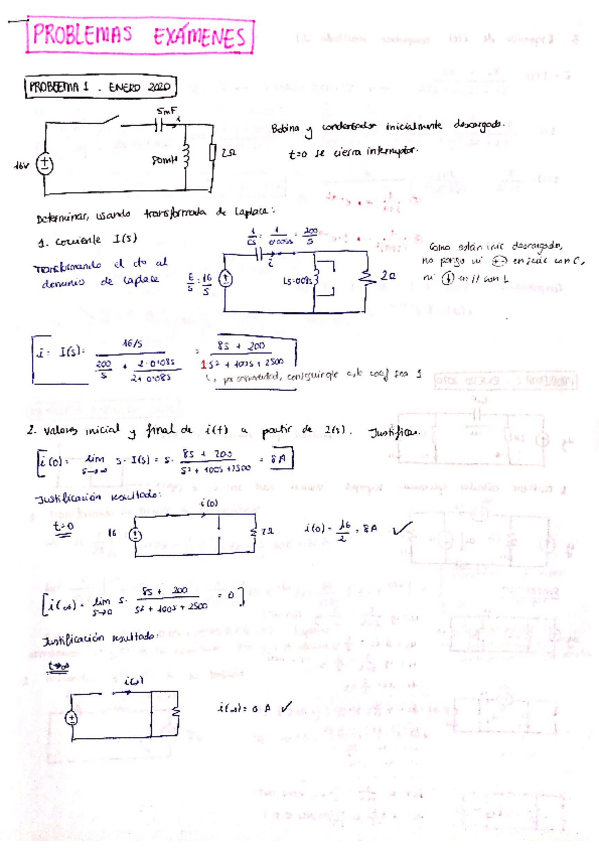 PROBLEMAS EXÁMENES
PROBLEMA 1. ENERO 2020
5mF
i
16V
80mH
2Ω
Bobina y condensador inicialmente descargado.
t=0 se cierra interruptor.
Determinar, usando transformada de Laplace:
1. Corriente I(s)
Transformando el cto al
dominio de Laplace
1/CS = 1/0'005s = 200/S
i
E/S = 16/S
LS=0'08s
2Ω
Como están inic descargados,
no pongo ni (+-) en serie con C,
ni (↓) en // con L
i = I(s) = (16/S) / (200/S + 2·0'08s/(2+0'08s)) = (8s + 200) / (1s² + 100s + 2500)
coef sea 1
2. Valores inicial y final de i(t) a partir de I(s). Justificar.
i(0) = lim s→∞ s·I(s) = s· (8s + 200) / (s² + 100s + 2500) = 8A
Justificación resultado:
t=0
i(0)
16
2Ω
i(0) = 16/2 = 8A ✓
i(∞) = lim s→0 s· (8s + 200) / (s² + 100s + 2500) = 0
Justificación resultado:
t=∞
i(∞)
i(∞) = 0 A ✓